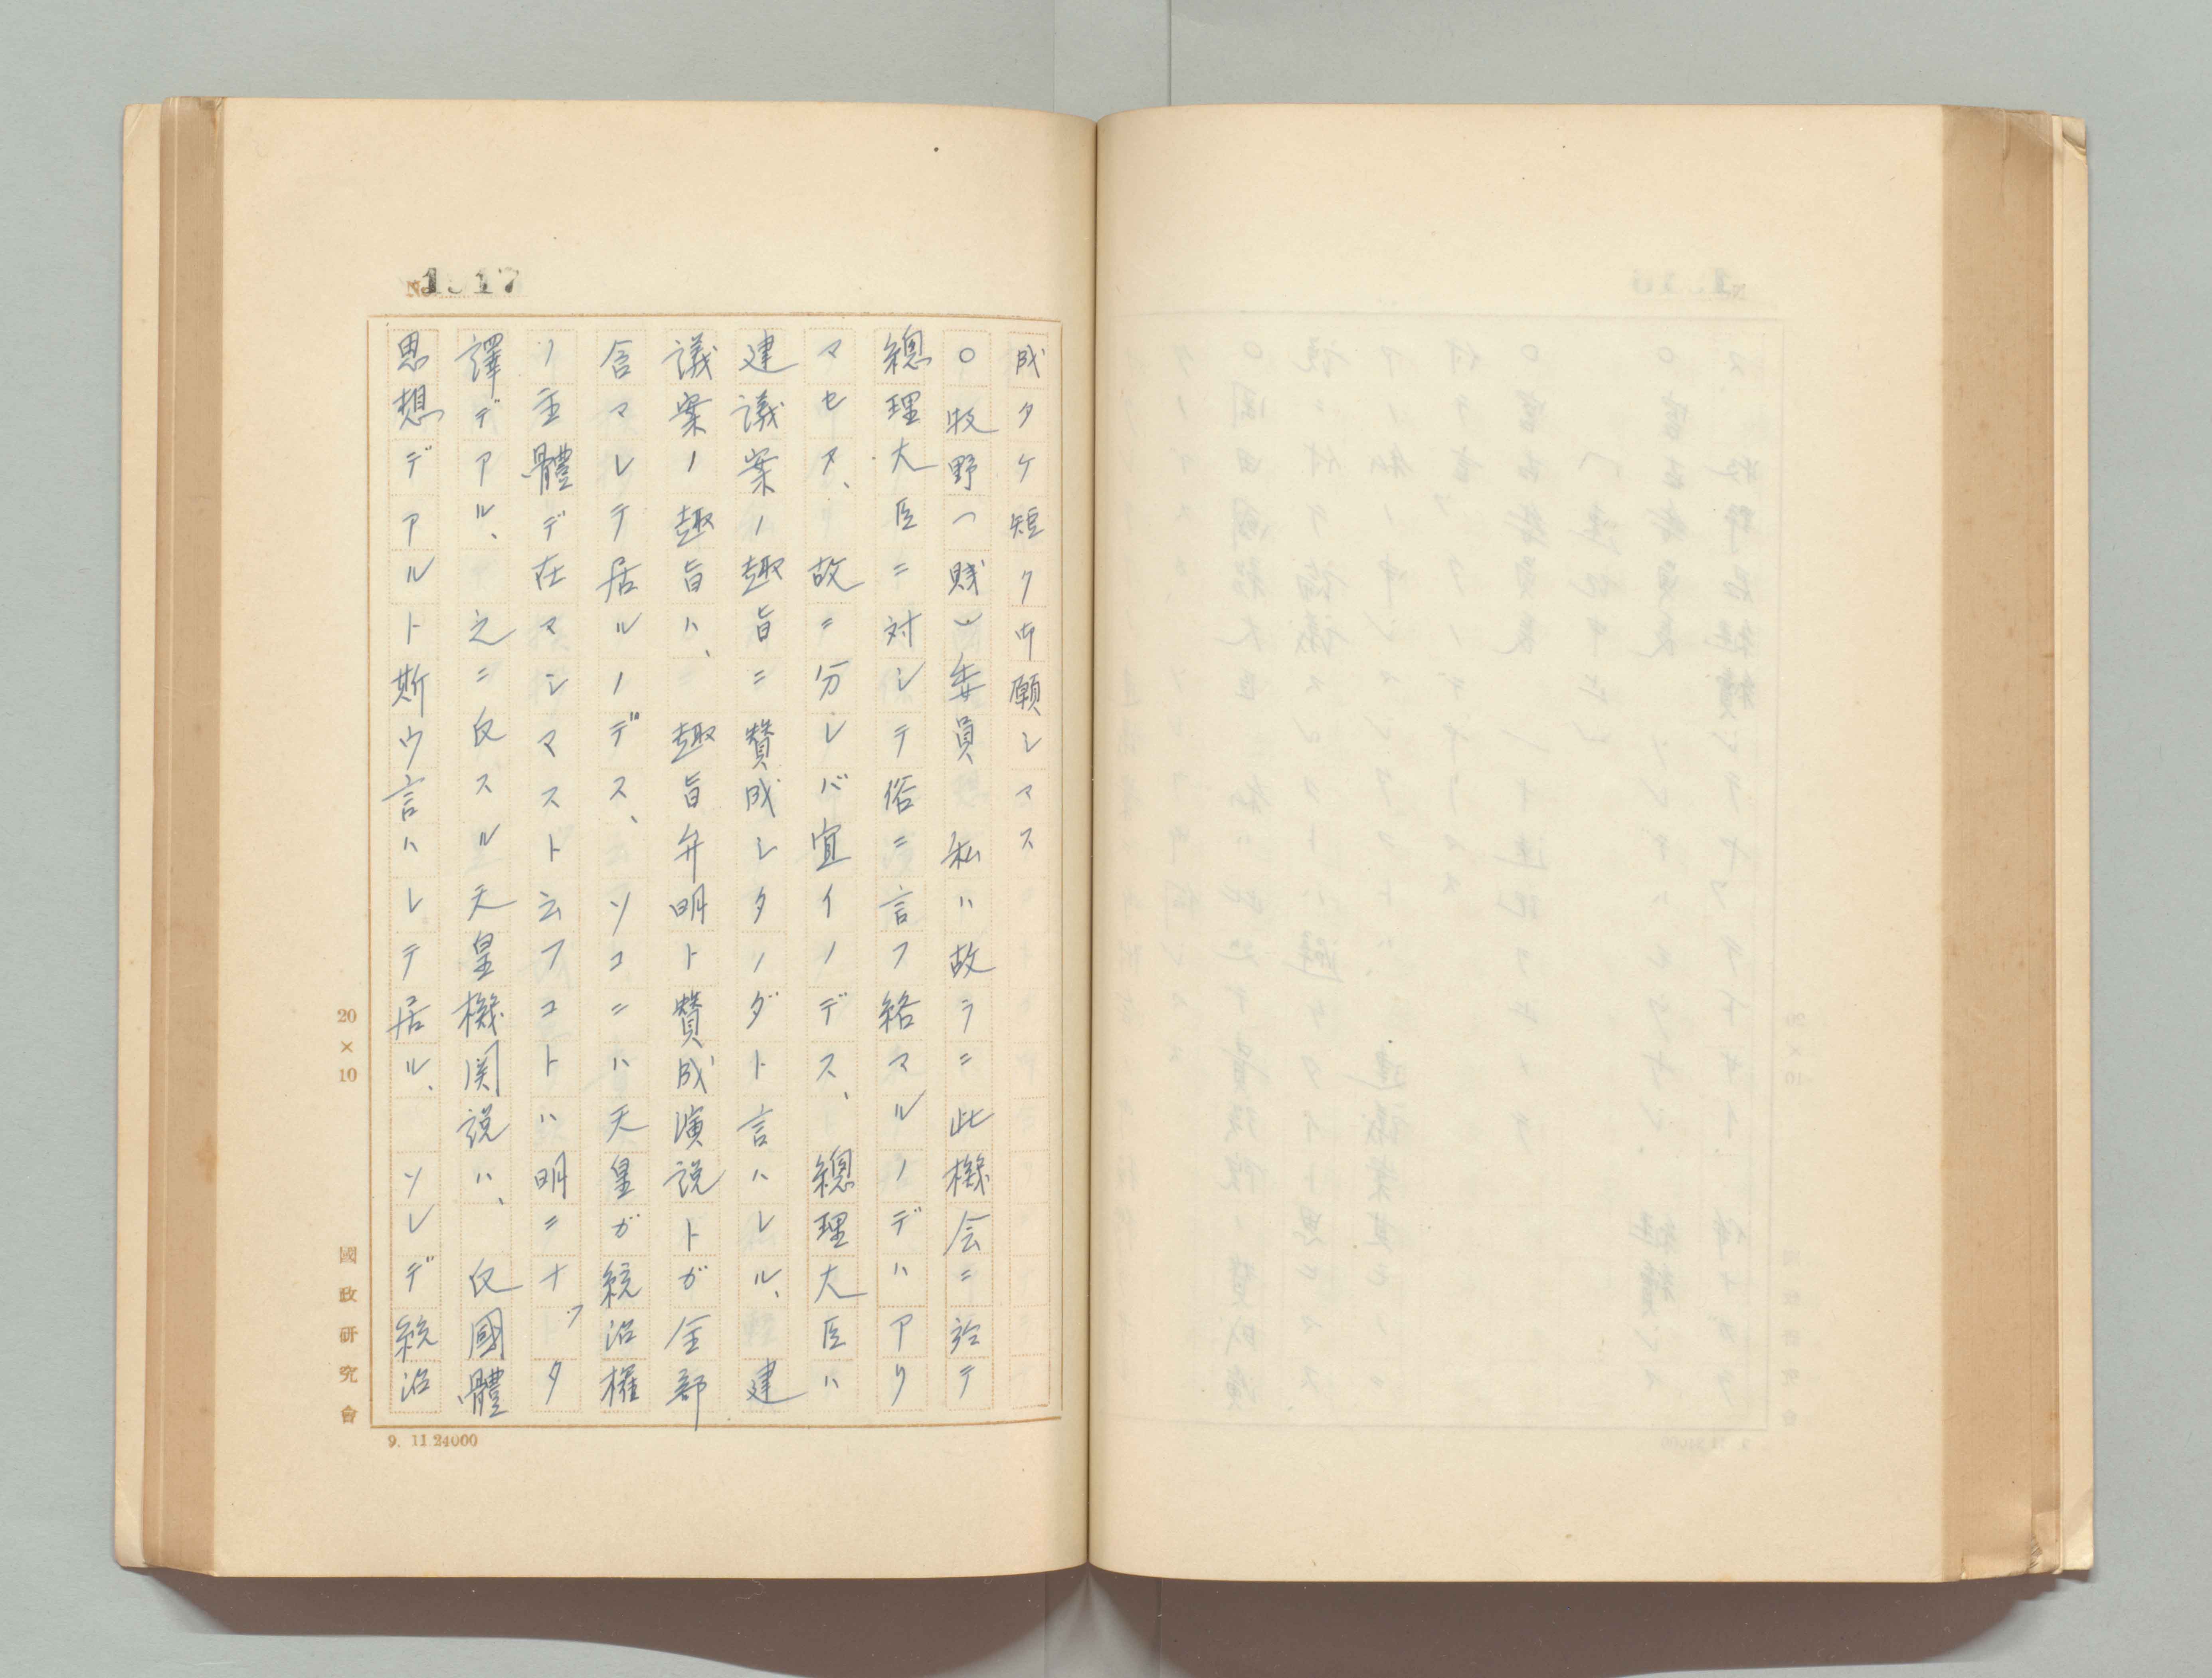 1.17
成タケ短ク御願シマス
○牧野(賤)委員 私ハ故ラニ此機会ニ於テ
總理大臣ニ対シテ俗ニ言フ絡マルノデハアリ
マセヌ、故ニ分レバ宜イノデス、總理大臣ハ
建議案ノ趣旨ニ賛成シタノダト言ハレル、建
議案ノ趣旨ハ、趣旨弁明ト賛成演説トガ全部
含マレテ居ルノデス、ソコニハ天皇ガ統治權
ノ主體デ在マシマスト云フコトハ明ニナッタ
譯デアル、之ニ反スル天皇機関説ハ、反國體
思想デアルト斯ウ言ハレテ居ル、ソレデ統治
20×10
國政研究會
9. 11.24000